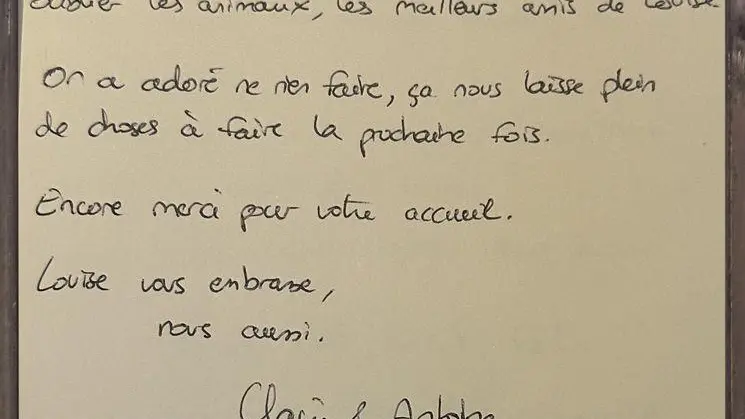 les animaux, les meilleurs amis de Louise
On a adoré ne rien faire, ça nous laisse plein
de choses à faire la prochaine fois.
Encore merci pour votre accueil.
Louise vous embrasse,
nous aussi.
&